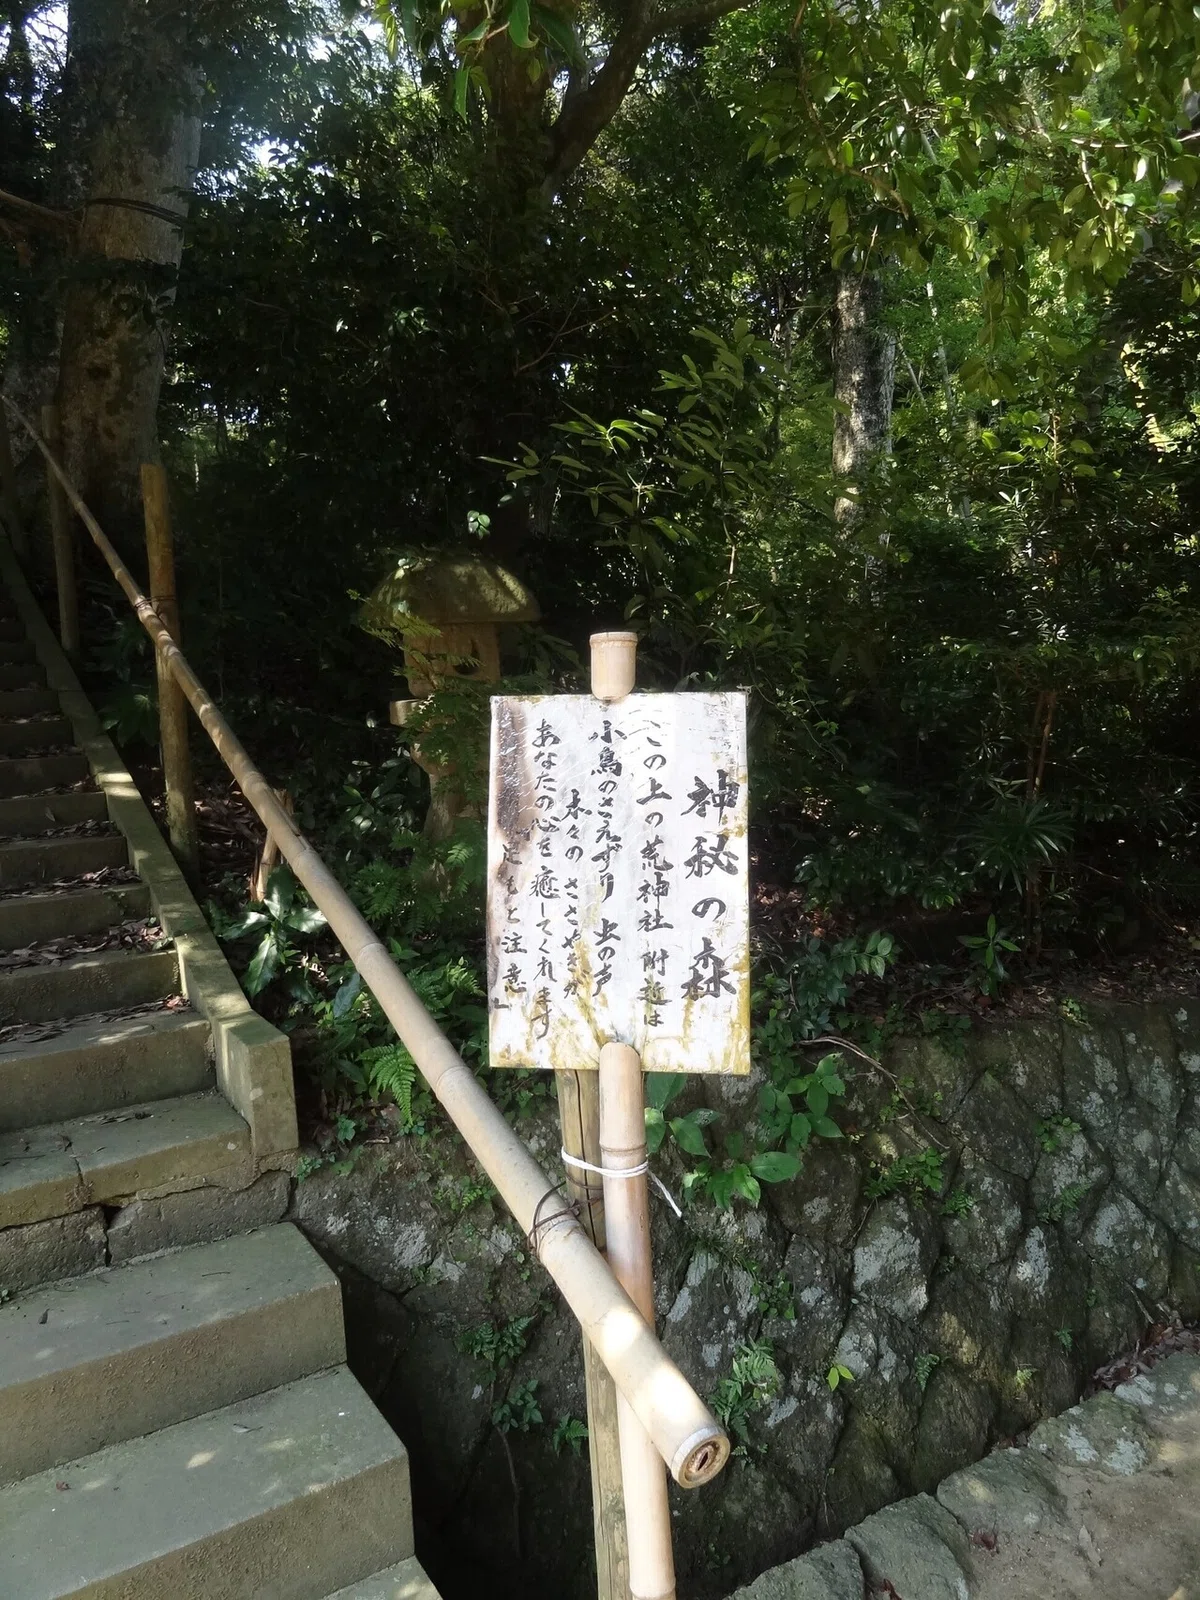 神秘の森
「この上の荒神社 附近は
小鳥のさえずり 虫の声
木々の ささやきが
あなたの心を癒してくれます
足もと注意」